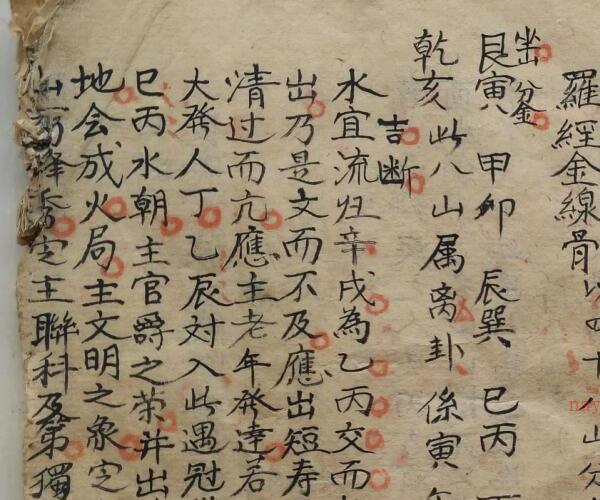 羅經金線骨以四十八山分
坐山分金
艮寅 甲卯 辰巽 巳丙
乾亥此八山属离卦係寅
吉断
水宜流归辛戌為乙丙交而
出乃是文而不及應出短寿
清过而亢應主老年發達若
大發人丁乙辰対入此遇冠
巳丙水朝主官爵之荣并出
地会成火局主文明之象定
峰秀定主聯科及第獨